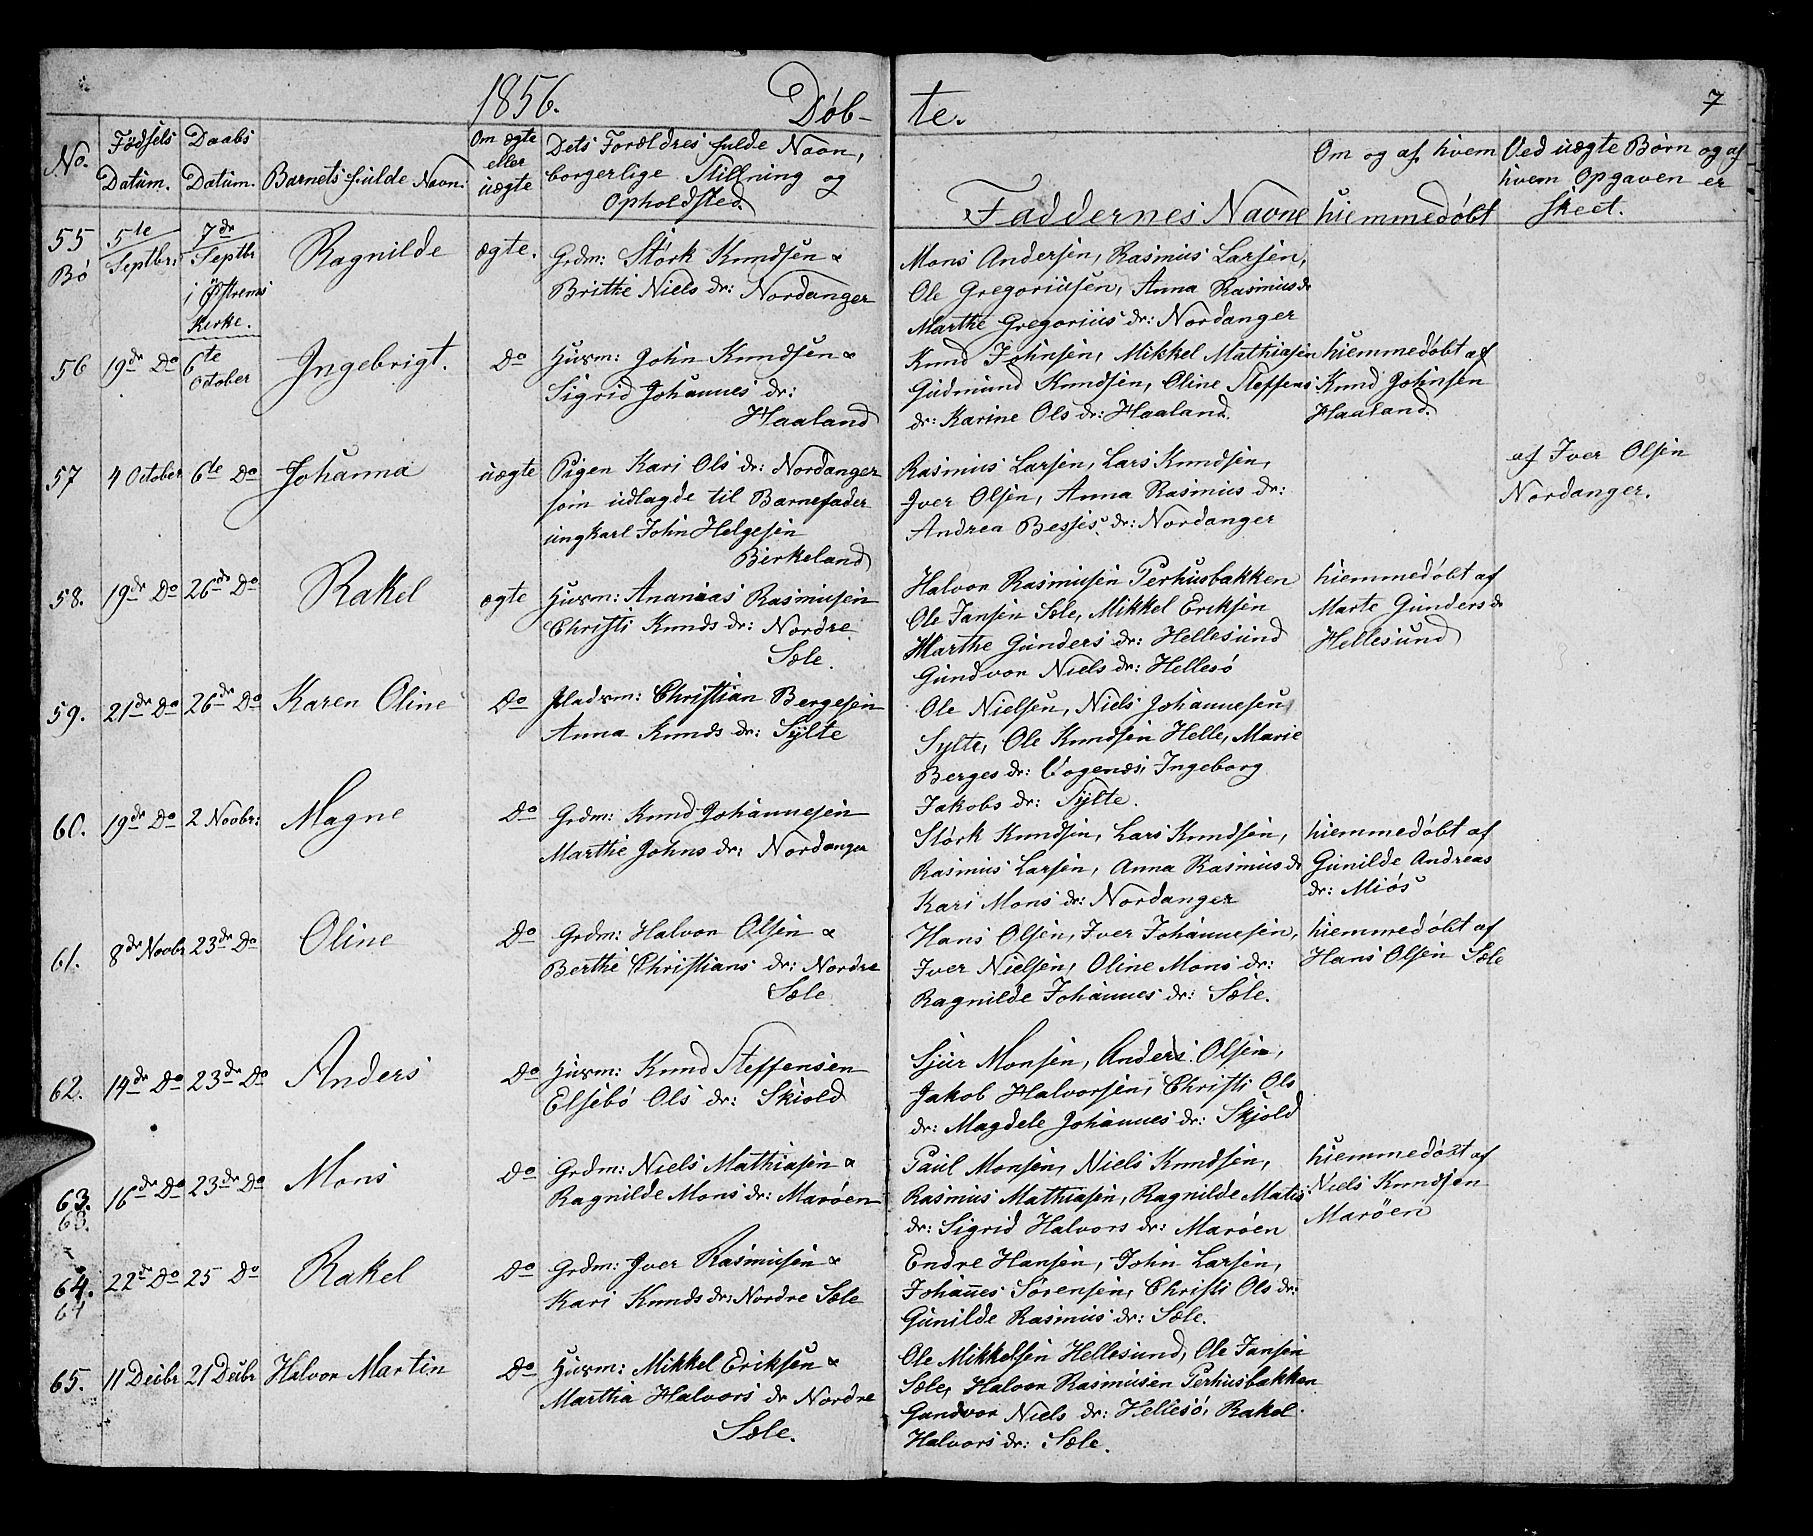 1856. Døb- te. 7
No. Fødsels Datum. Daabs Datum. Barnets fulde Navn. Om ægte eller uægte Dets Forældres fulde Navn, borgerlige Stillning og Opholdsted. Faddernes Navne Om og af hvem hiemmedøbt Ved uægte Børn og af hvem Opgaven er skeet.
55 5te 7de Ragnilde ægte. Grdm: Størk Knudsen & Mons Andersen, Rasmus Larsen,
Bø Septbr: Septbr i Østrems Kirke. Brithe Niels dr: Nordanger Ole Gregoriusen, Anna Rasmus dr
Marthe Gregorius dr: Nordanger
56 19de Do 6te October Ingebrigt. Do Husm: John Knudsen & Knud Johnsen, Mikkel Mathiasen hiemmedøbt af
Sigrid Johannes dr: Gudmund Knudsen, Oline Steffens Knud Johnsen
Haaland dr: Karine Ols dr: Haaland. Haaland.
57 4 October 6te Do Johanna uægte Pigen Kari Ols dr: Nordanger Rasmus Larsen, Lars Knudsen, af Iver Olsen
som udlagde til Barnefader Iver Olsen, Anna Rasmus dr: Nordanger.
ungkarl John Helgesen Andrea Besses dr: Nordanger
Birkeland
58. 19de Do 26de Do Rakel ægte Husm: Ananias Rasmusen Halvor Rasmusen Perhusbakken hiemmedøbt af
Christi Knuds dr: Nordre Ole Jansen Sæle, Mikkel Eriksen Marte Gunders dr
Sæle. Marthe Gunders dr: Hellesund Hellesund
Gundvor Niels dr: Hellesø
59. 21de Do 26de Do Karen Oline Do Pladsm: Christian Bergesen Ole Nielsen, Niels Johannesen
Anna Knuds dr: Sylte Sylte, Ole Knudsen Helle, Marie
Berges dr: Vogenæs, Ingeborg
Jakobs dr: Sylte.
60. 19de Do 2 Novbr: Magne Do Grdm: Knud Johannesen Størk Knudsen, Lars Knudsen, hiemmedøbt af
Marthe Johns dr: Nordanger Rasmus Larsen, Anna Rasmus dr Gunilde Andreas
Kari Mons dr: Nordanger dr: Miøs
61. 8de Novbr 23de Do Oline Do Grdm: Halvor Olsen & Hans Olsen, Iver Johannesen, hiemmedøbt af
Berthe Christians dr: Nordre Iver Nielsen, Oline Mons dr: Hans Olsen Sæle
Sæle Ragnilde Johannes dr: Sæle.
62. 14de Do 23de Do Anders Do Husm: Knud Steffensen Sjur Monsen, Anders Olsen,
Elsebø Ols dr: Skiold Jakob Halvorsen, Christi Ols
dr: Magdele Johannes dr: Skjold
63. 16de Do 23de Do Mons Do Grdm: Niels Mathiasen & Paul Monsen, Niels Knudsen, hiemmedøbt af
63. Ragnilde Mons dr: Marøen Rasmus Mathiasen, Ragnilde Matis Niels Knudsen
dr: Sigrid Halvors dr: Marøen Marøen
64. 22de Do 25 Do Rakel Do Grdm: Iver Rasmusen & Endre Hansen, John Larsen,
64 Kari Knuds dr: Nordre Sæle Johannes Sørensen, Christi Ols dr:
Gunilde Rasmus dr: Sæle.
65. 11 Decbr 21 Decbr Halvor Martin Do Husm: Mikkel Eriksen & Ole Mikkelsen Hellesund, Ole Jansen
Martha Halvors dr Nordre Sæle, Halvor Rasmusen Perhusbakken
Sæle. Gundvor Niels dr: Hellesø, Rakel
Halvors dr: Sæle.